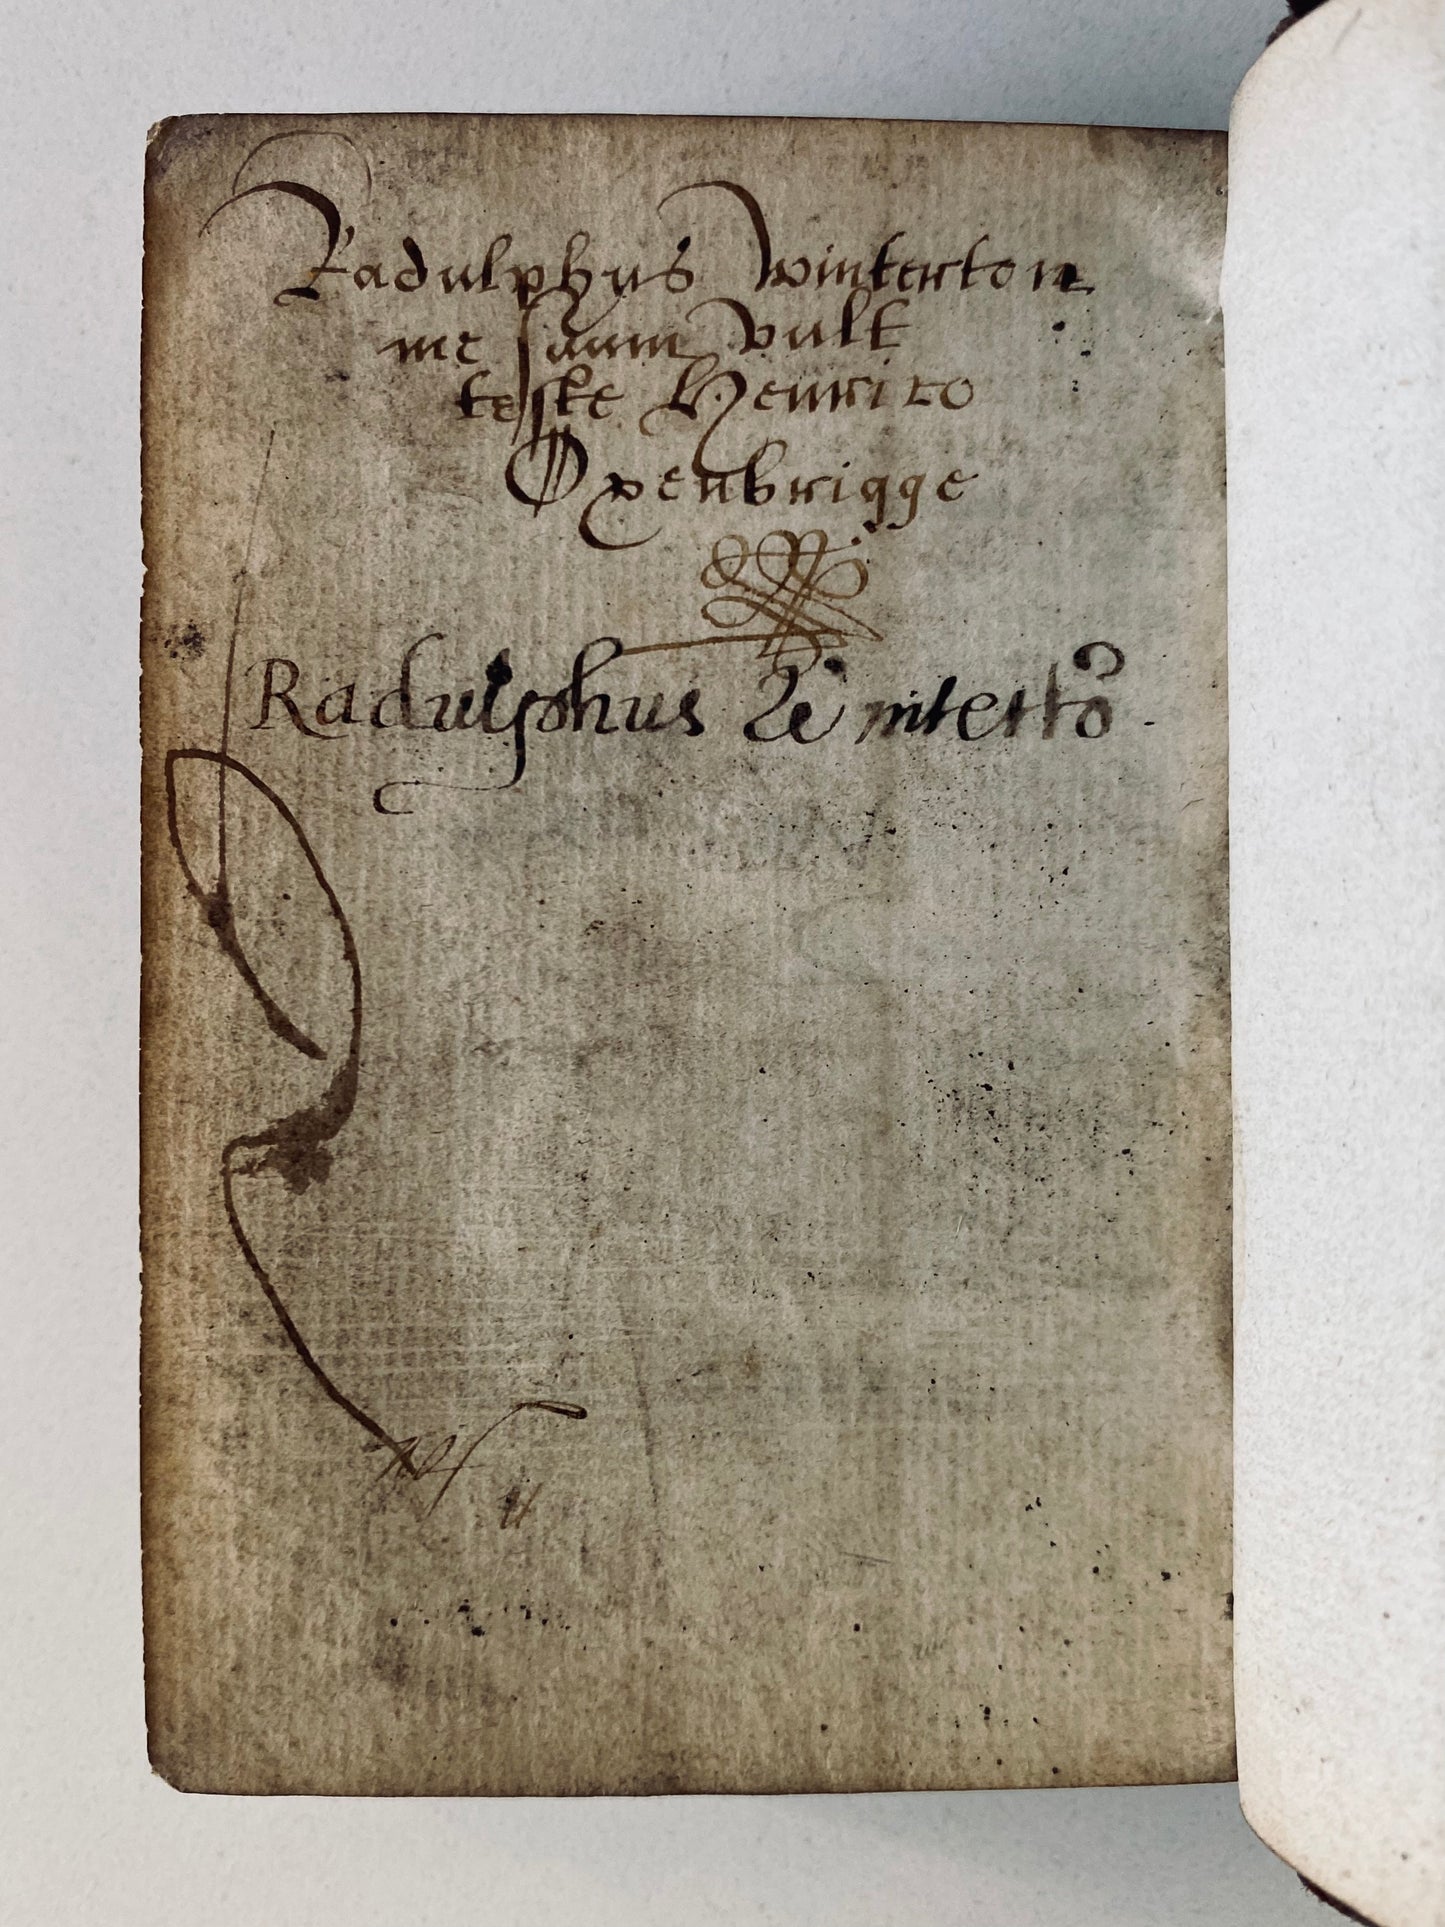 Radulphus Winterton
me suum vult
teste Henrico
Oxenbrigge
Radulphus Wintertō